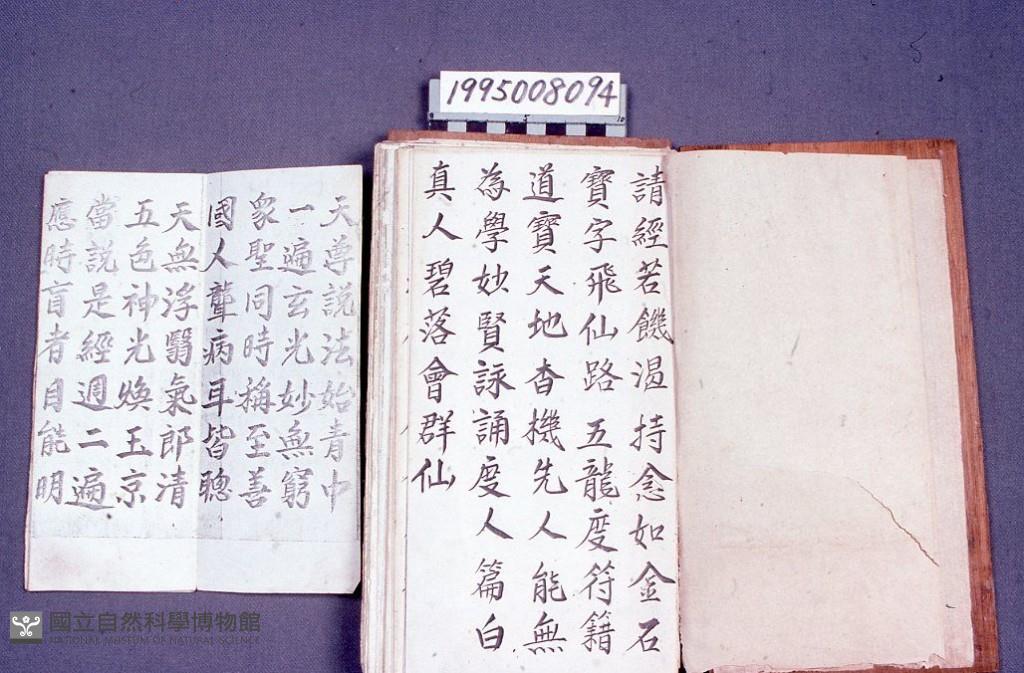 1995008094
請經若饑渴持念如金石
寶字飛仙路五龍度符籍
道寶天地杳機先人能無
為學妙賢詠誦度人篇白
真人碧落會群仙
天尊說法始青中
一遍玄光妙無窮
衆聖同時稱至善
國人聾病耳皆聰
天無浮翳氣郎清
五色神光煥玉京
當說是經週二遍
應時盲者目能明
國立自然科學博物館
NATIONAL MUSEUM OF NATURAL SCIENCE